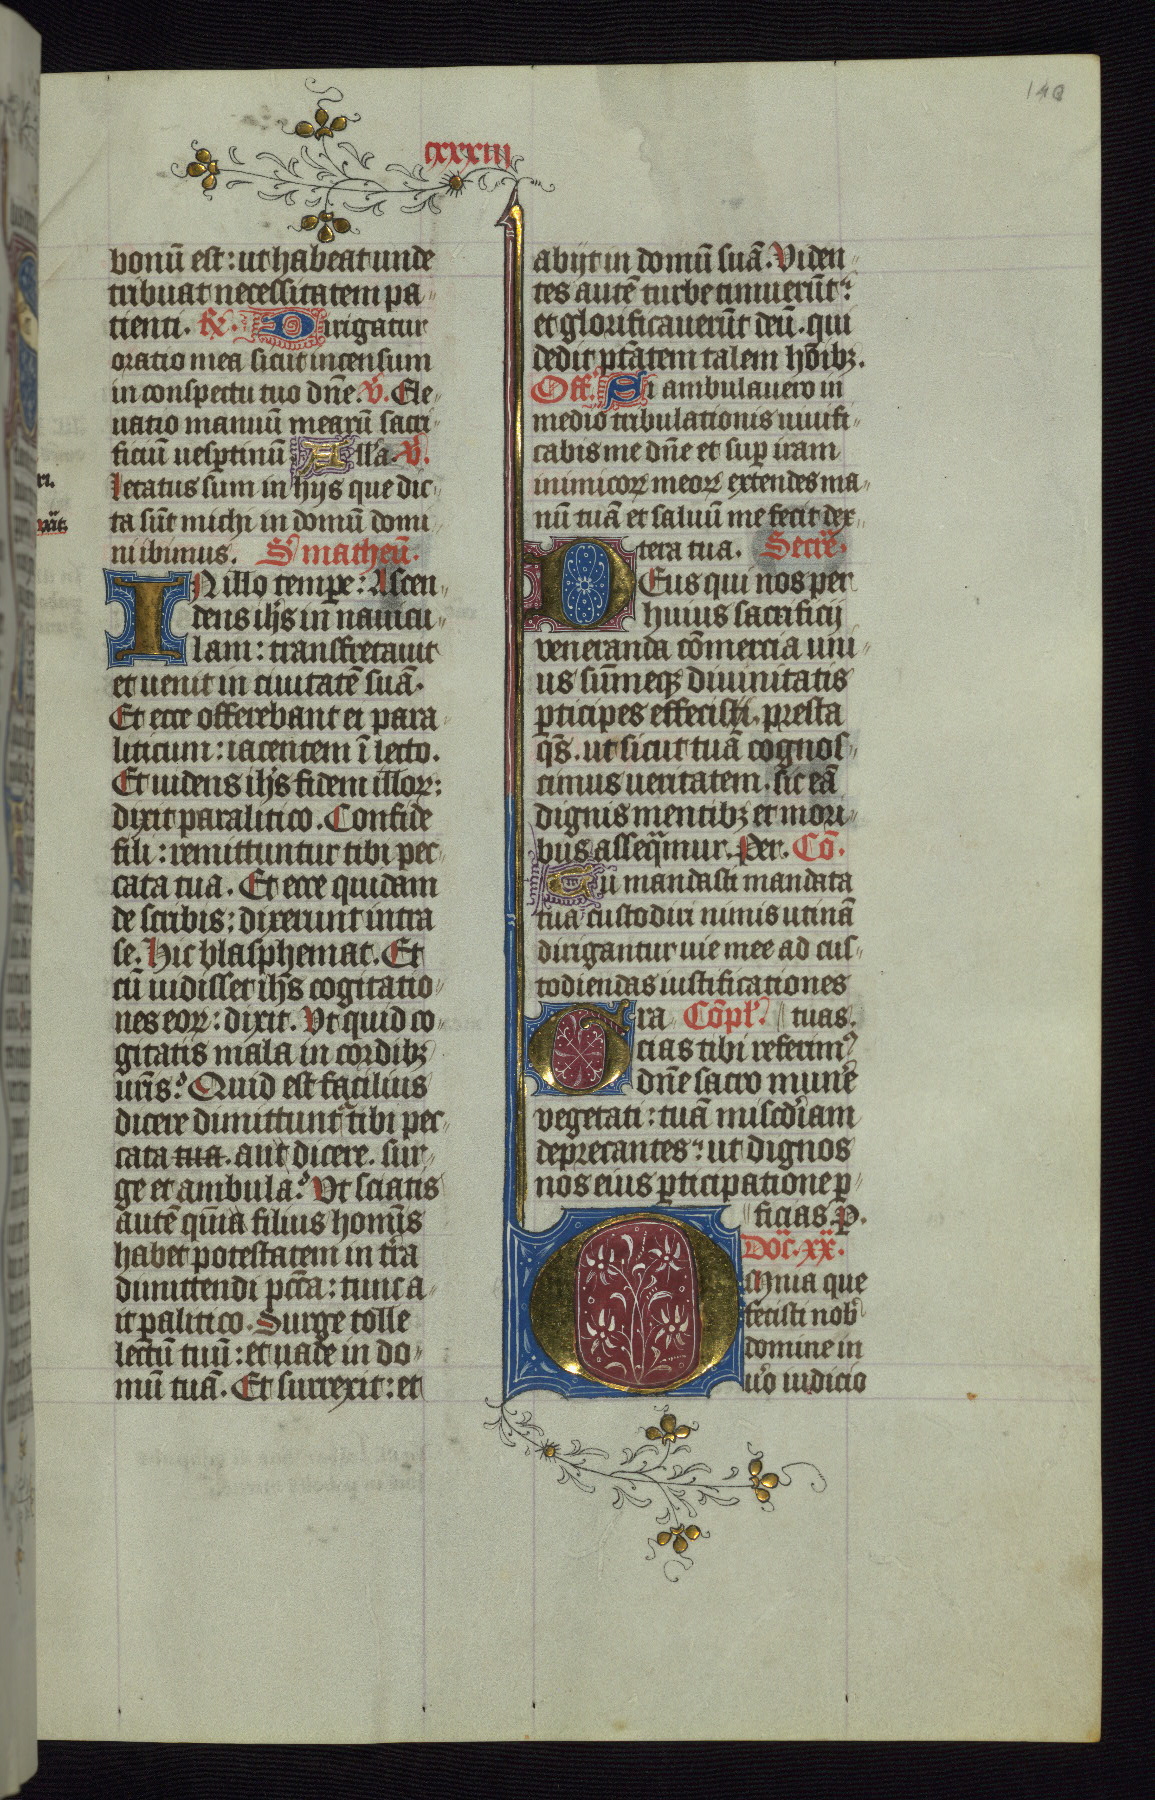 140
cxxxiii
bonū est : ut habeat unde
tribuat necessitatem pa
tienti. R̃. Dirigatur
oratio mea sicut incensum
in conspectu tuo dñe. V̄. Ele
uatio manuū mearū sacri
ficiū uesp̱tinū Alľa. V̄.
Letatus sum in hijs que dic
ta sūt michi in domū domi
ni ibimus. S' matheū.
IN illo temp̱e : Ascen
dens ih̄s in nauicu
lam : transfretauit
et uenit in ciuitatē suā.
Et ecce offerebant ei para
liticum : iacentem ī lecto.
Et uidens ih̄s fidem illoꝝ :
dixit paralitico. Confide
fili : remittuntur tibi pec
cata tua. Et ecce quidam
de scribis : dixerunt intra
se. Hic blasphemat. Et
cū uidisset ih̄s cogitatio
nes eoꝝ : dixit. Vt quid co
gitatis mala in cordibꝫ
ur̄is? Quid est facilius
dicere dimittunt᷑ tibi pec
cata tua. aut dicere. sur
ge et ambula? Vt sciatis
autē qm̄ia filius hom̄is
habet potestatem in tr̄a
dimittendi pcc̄a : tunc a
it ꝑalitico. Surge tolle
lectū tuū : et uade in do
mū tuā. Et surrexit : et
abijt in domū suā. Viden
tes autē turbe timuerūt :
et glorificauerūt deū. qui
dedit ptātem talem hōibꝫ.
Off. Si ambulauero in
medio tribulationis uiuifi
cabis me dñe et suꝑ iram
inimicoꝝ meoꝝ extendes ma
nū tuā et saluū me fecit dex
tera tua. Secrē.
DEus qui nos per
huius sacrificij
ueneranda cōmercia uni
us sūmeqꝫ diuinitatis
ꝑticipes effecisti. presta
qs̄. ut sicut tuā cognos
cimus ueritatem. sic eā
dignis mentibꝫ et mori
bus asseqͣmur. Per. Cō.
Tu mandasti mandata
tua custodiri nimis utinā
dirigantur uie mee ad cus
todiendas iustificationes
Gra Cōpl'. tuas.
cias tibi referimꝰ
dñe sacro mun̄e
vegetati : tuā misc̄diam
deprecantes : ut dignos
nos eius ꝑticipatione ꝑ
ficias. P.
Doc̄. xx.
Omnia que
fecisti nob̄
domine in
u'o iudicio